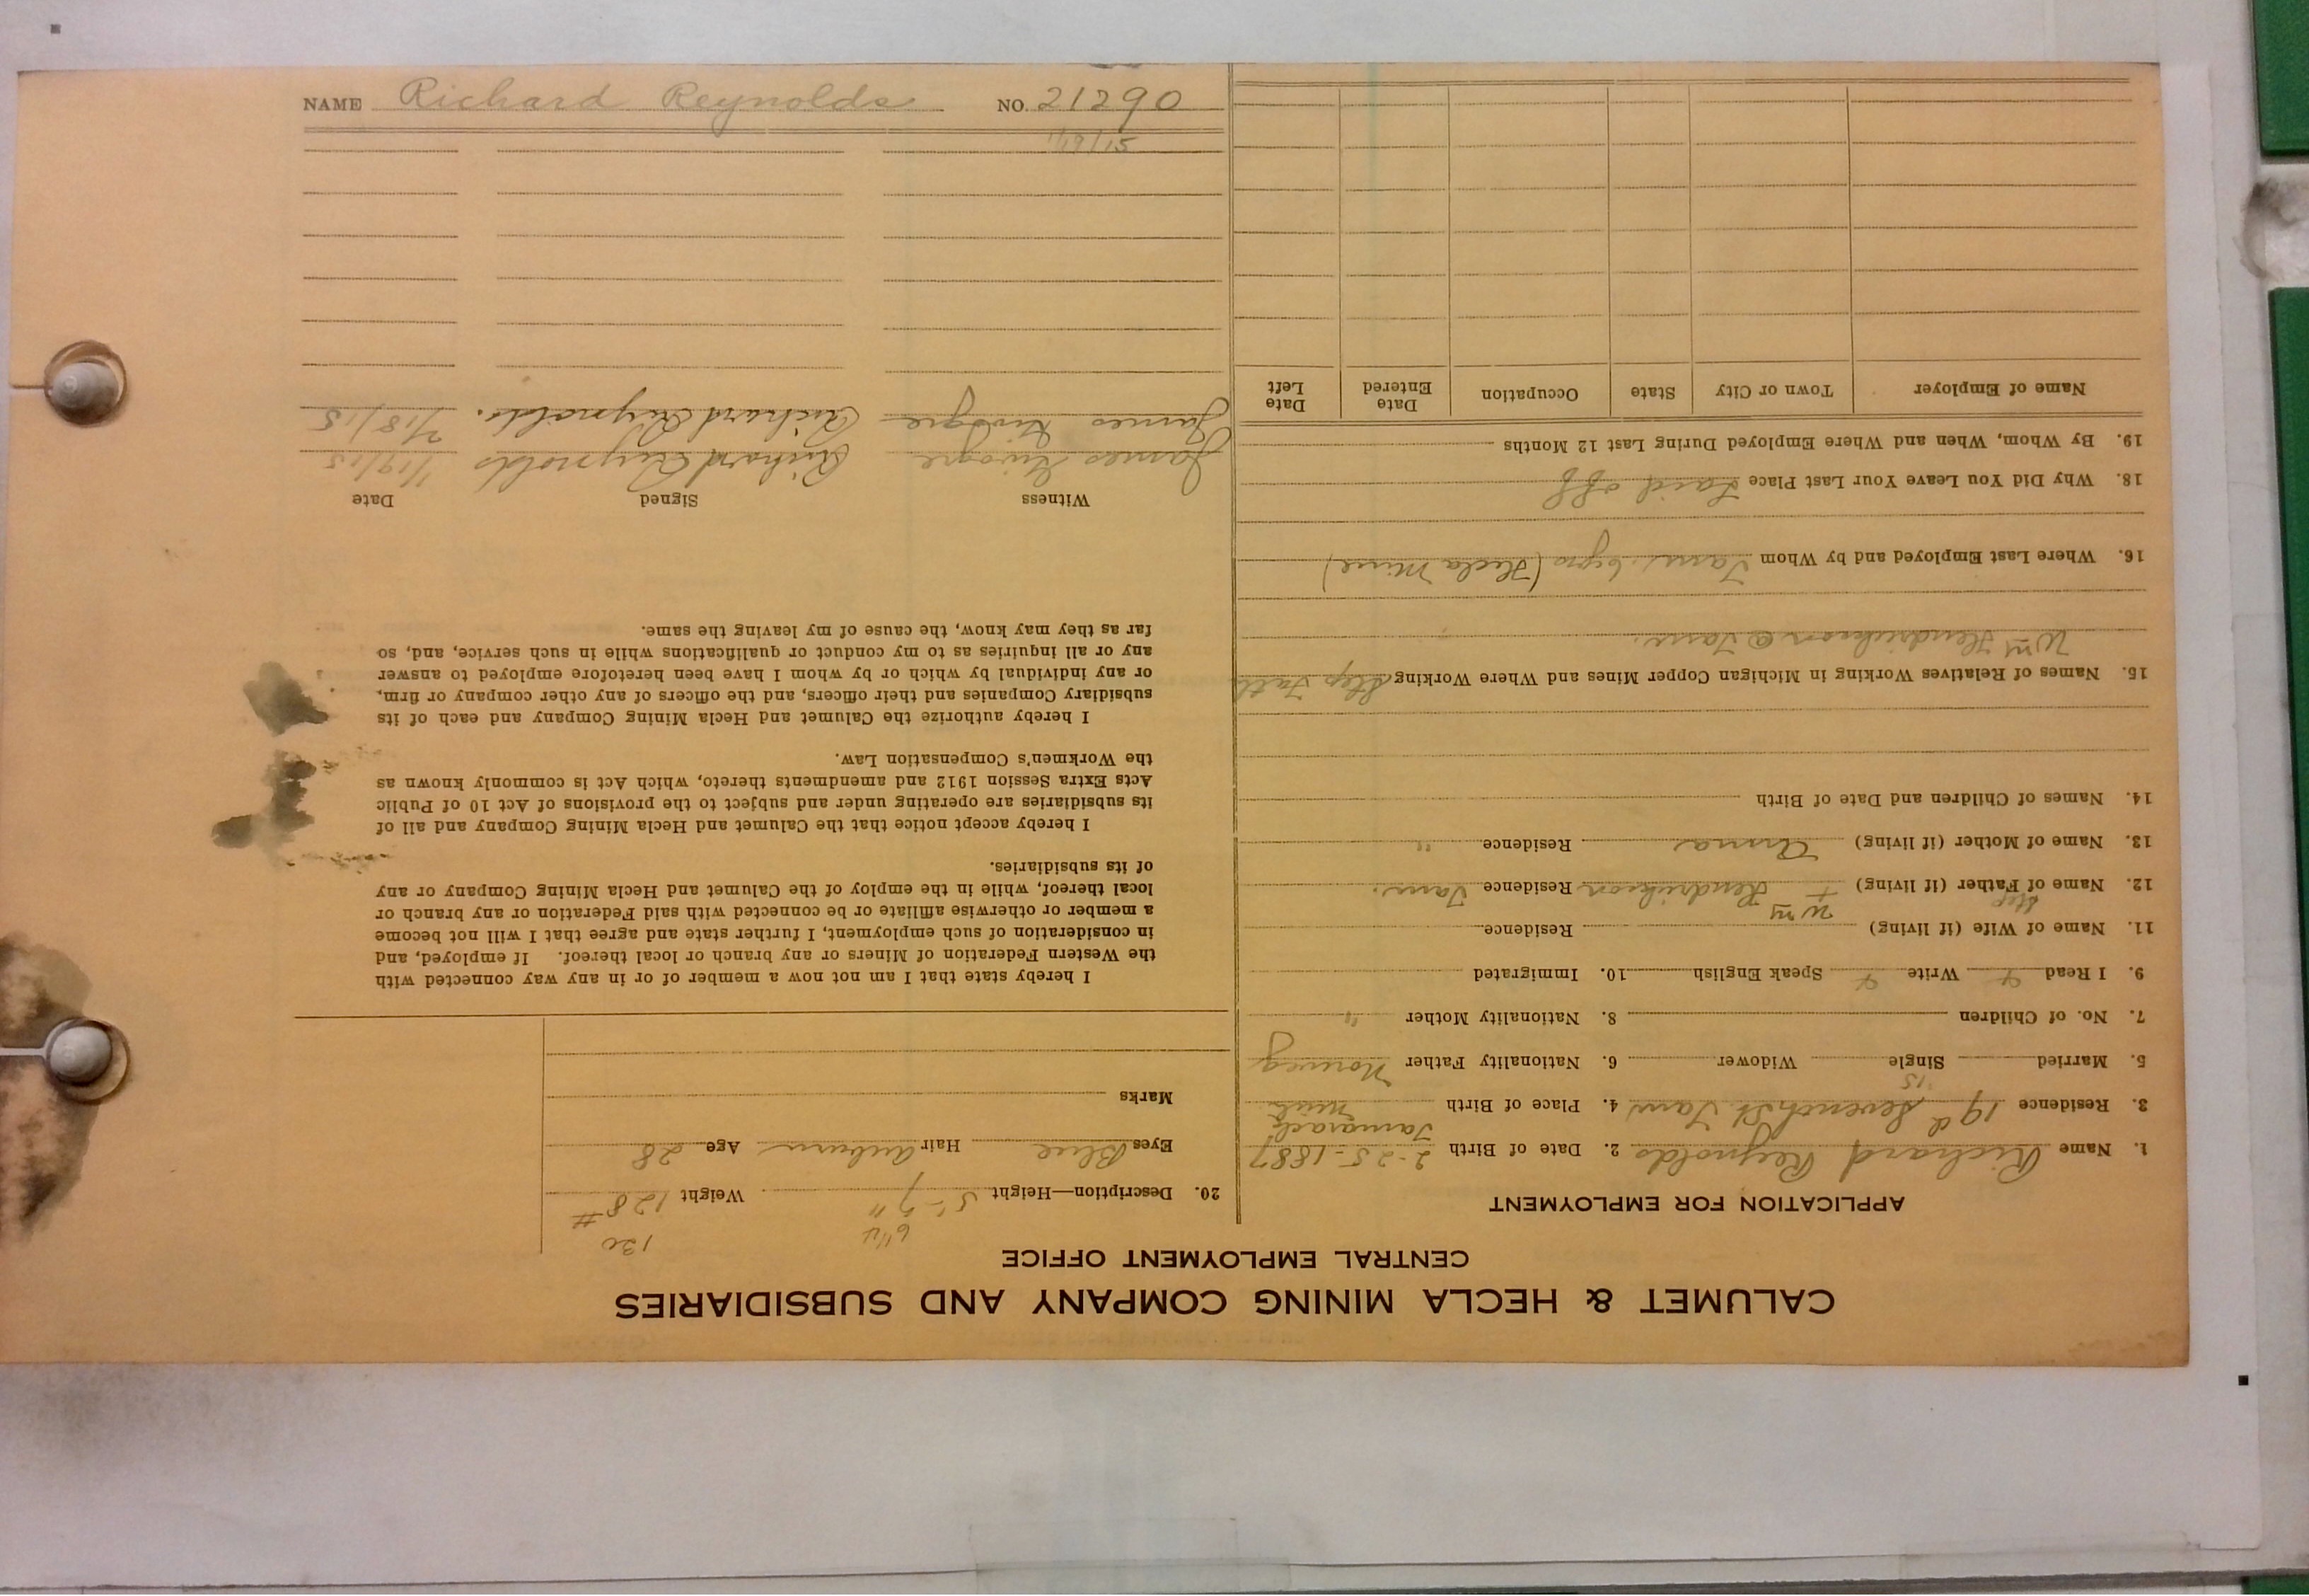 NAME Richard Reynolds NO. 21290
1/19/15
CALUMET & HECLA MINING COMPANY AND SUBSIDIARIES
CENTRAL EMPLOYMENT OFFICE
APPLICATION FOR EMPLOYMENT
1. Name Richard Reynolds 2. Date of Birth 2-25-1887
Tamarack
3. Residence 19 Seventh St Tam 4. Place of Birth Mich
15
5. Married Single Widower 6. Nationality Father Norweg
7. No. of Children 8. Nationality Mother "
9. I Read Write Speak English 10. Immigrated
11. Name of Wife (if living) Residence
Step Wm
12. Name of Father (if living) Hendrickson Residence Tam.
13. Name of Mother (if living) Anna Residence "
14. Names of Children and Date of Birth
15. Names of Relatives Working in Michigan Copper Mines and Where Working Step Fath
Wm Hendrickson @ Tam.
16. Where Last Employed and by Whom Tam. (Hecla Mine)
18. Why Did You Leave Your Last Place Laid off
19. By Whom, When and Where Employed During Last 12 Months
Name of Employer Town or City State Occupation Date Entered Date Left
130
6 1/4
20. Description—Height 5'-7" Weight 128 #
Eyes Blue Hair Auburn Age 28
Marks
I hereby state that I am not now a member of or in any way connected with
the Western Federation of Miners or any branch or local thereof. If employed, and
in consideration of such employment, I further state and agree that I will not become
a member or otherwise affiliate or be connected with said Federation or any branch or
local thereof, while in the employ of the Calumet and Hecla Mining Company or any
of its subsidiaries.
I hereby accept notice that the Calumet and Hecla Mining Company and all of
its subsidiaries are operating under and subject to the provisions of Act 10 of Public
Acts Extra Session 1912 and amendments thereto, which Act is commonly known as
the Workmen's Compensation Law.
I hereby authorize the Calumet and Hecla Mining Company and each of its
subsidiary Companies and their officers, and the officers of any other company or firm,
or any individual by which or by whom I have been heretofore employed to answer
any or all inquiries as to my conduct or qualifications while in such service, and, so
far as they may know, the cause of my leaving the same.
Witness Signed Date
James Richard Reynolds 1/19/15
James Richard Reynolds. 2/18/15